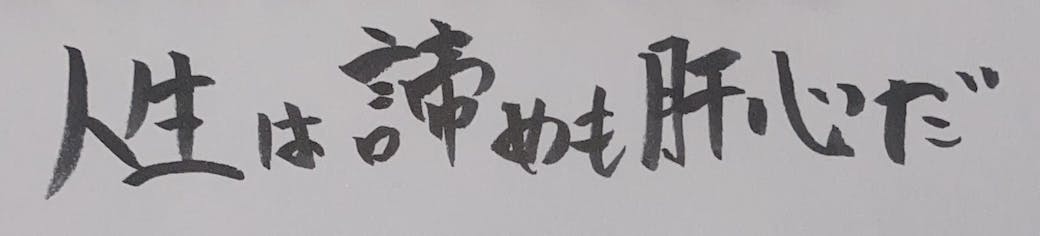 人生は諦めも肝心だ